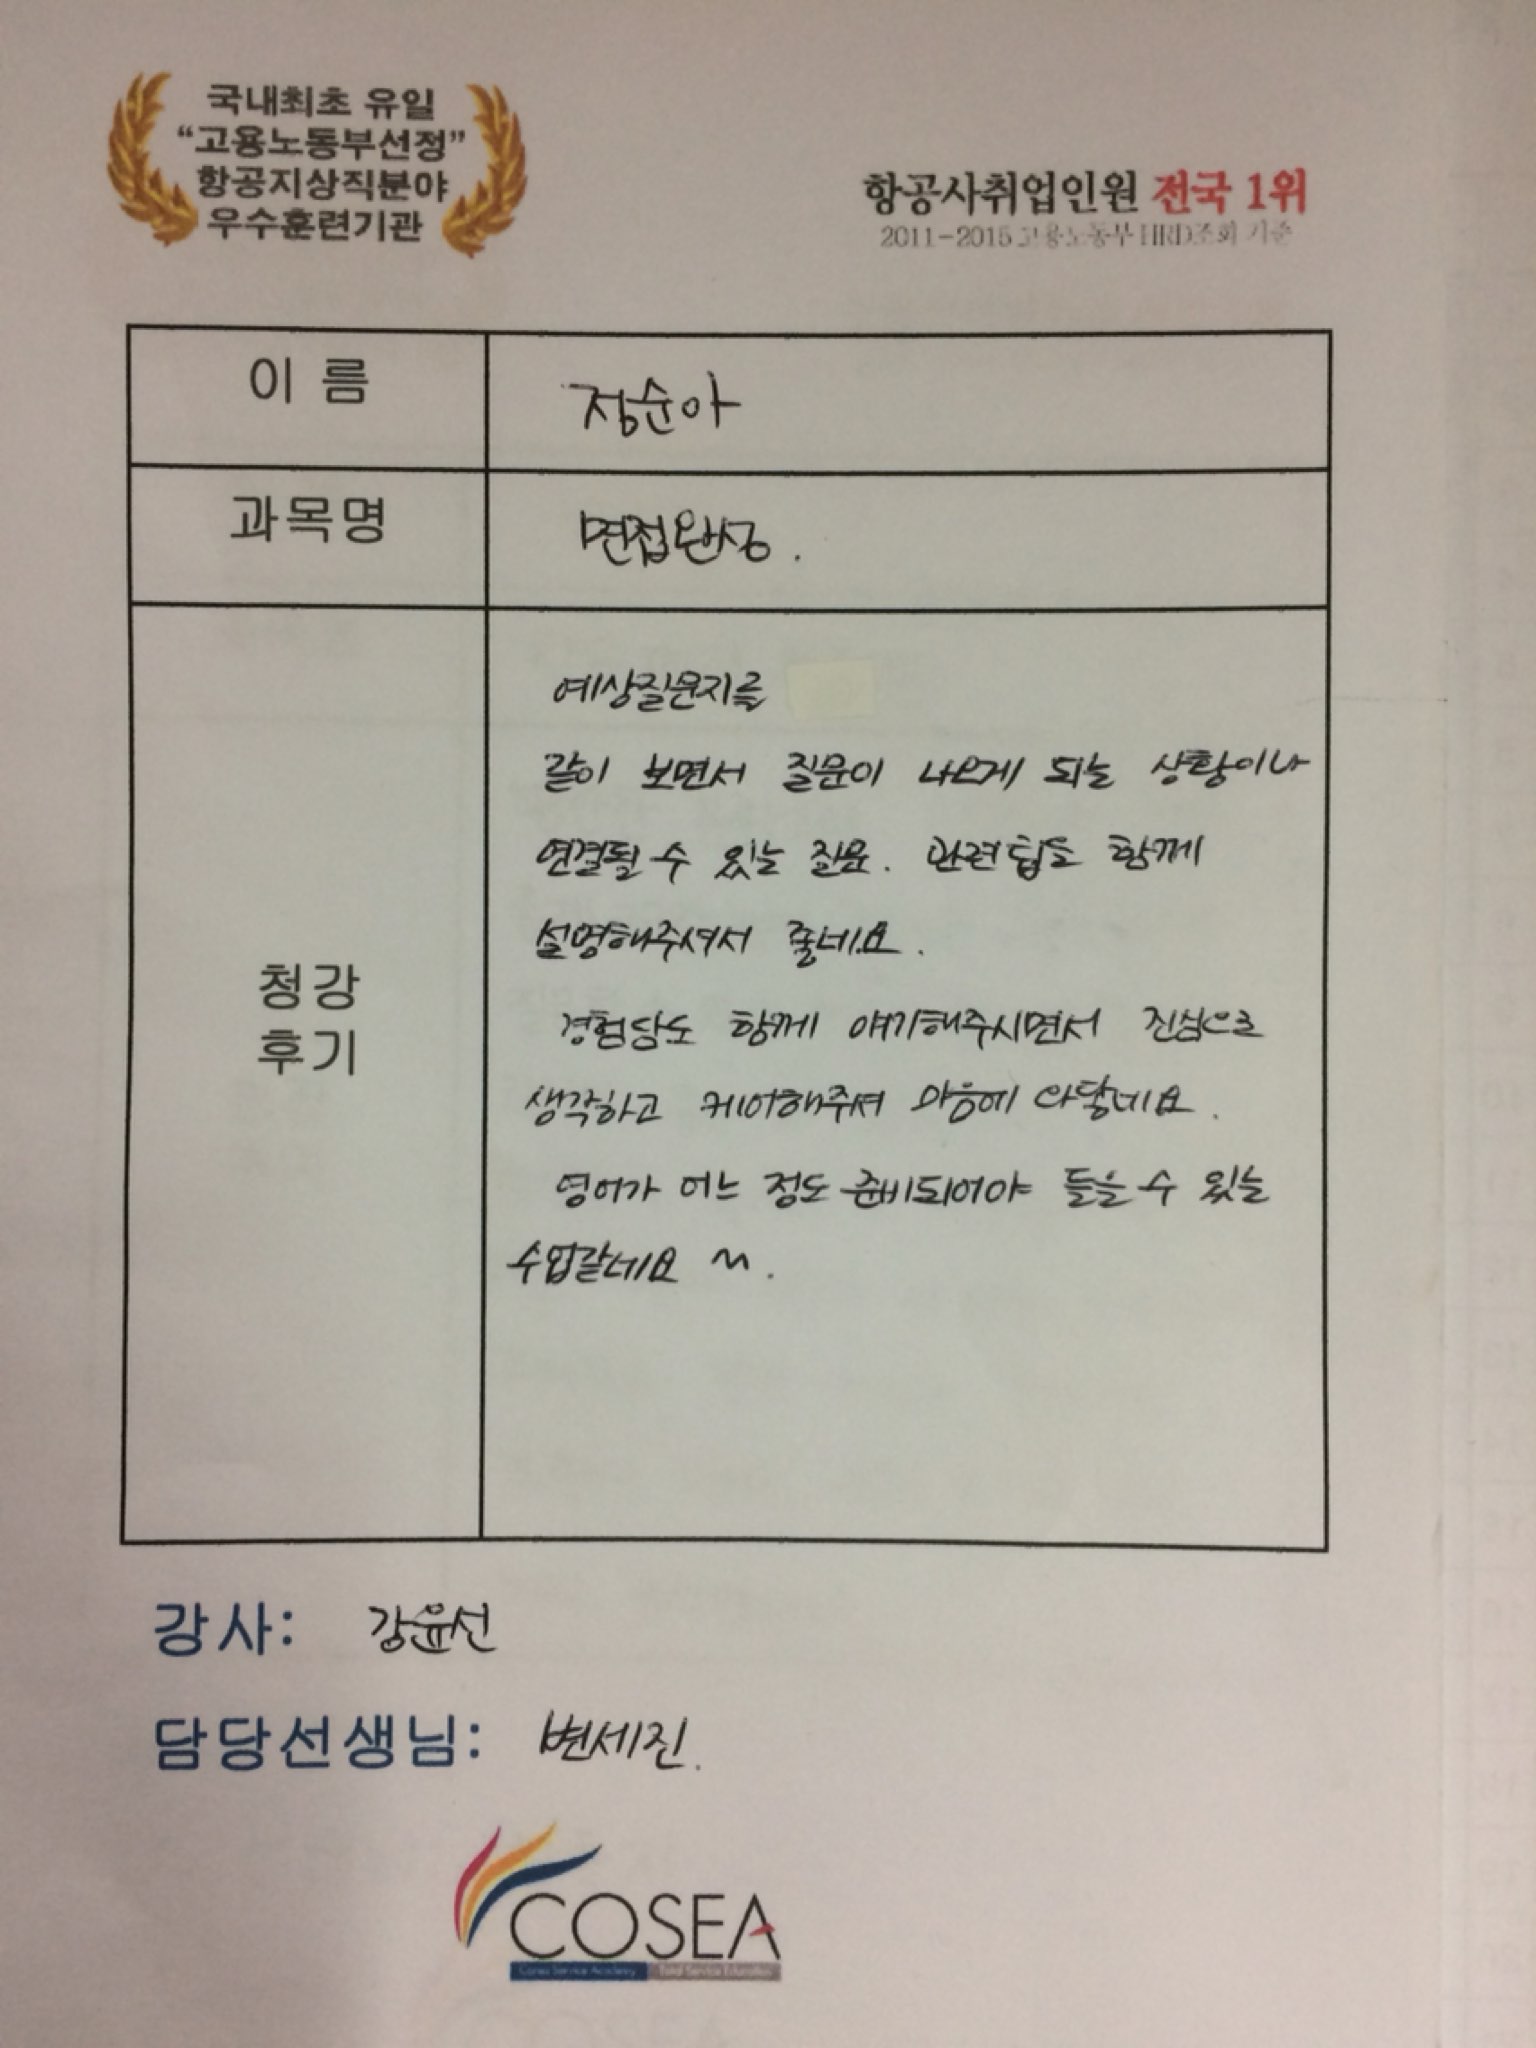 국내최초 유일
“고용노동부선정”
항공지상직분야
우수훈련기관
항공사취업인원 전국 1위
2011-2015 고용노동부 HRD조회 기준
이 름
정순아
과목명
면접완성.
청강
후기
예상질문지를
같이 보면서 질문이 나오게 되는 상황이나
연결될 수 있는 질문. 관련팁도 함께
설명해주셔서 좋네요.
경험담도 함께 얘기해주시면서 진심으로
생각하고 케어해주셔 마음에 와닿네요.
영어가 어느 정도 준비되어야 들을 수 있는
수업같네요 ~.
강사: 강윤선
담당선생님: 변세진.
COSEA
Cosea Service Academy Total Service Education